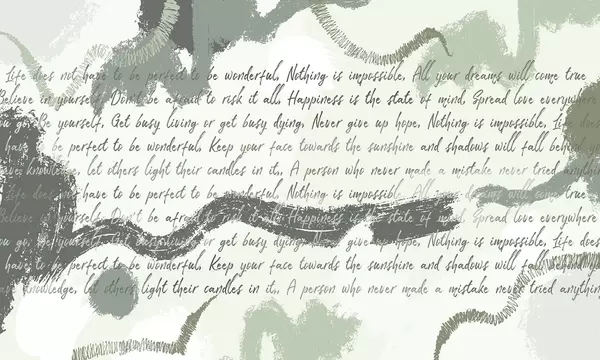 Life does not have to be perfect to be wonderful. Nothing is impossible. All your dreams will come true
Believe in yourself. Don't be afraid to risk it all. Happiness is the state of mind. Spread love everywhere
you go. Be yourself. Get busy living or get busy dying. Never give up hope. Nothing is impossible. Life does
have to be perfect to be wonderful. Keep your face towards the sunshine and shadows will fall behind you
have knowledge, let others light their candles in it.. A person who never made a mistake never tried anything
Life does not have to be perfect to be wonderful. Nothing is impossible. All your dreams will come true
Believe in yourself. Don't be afraid to risk it all. Happiness is the state of mind. Spread love everywhere
you go. Be yourself. Get busy living or get busy dying. Never give up hope. Nothing is impossible. Life does
have to be perfect to be wonderful. Keep your face towards the sunshine and shadows will fall
knowledge, let others light their candles in it.. A person who never made a mistake never tried anything